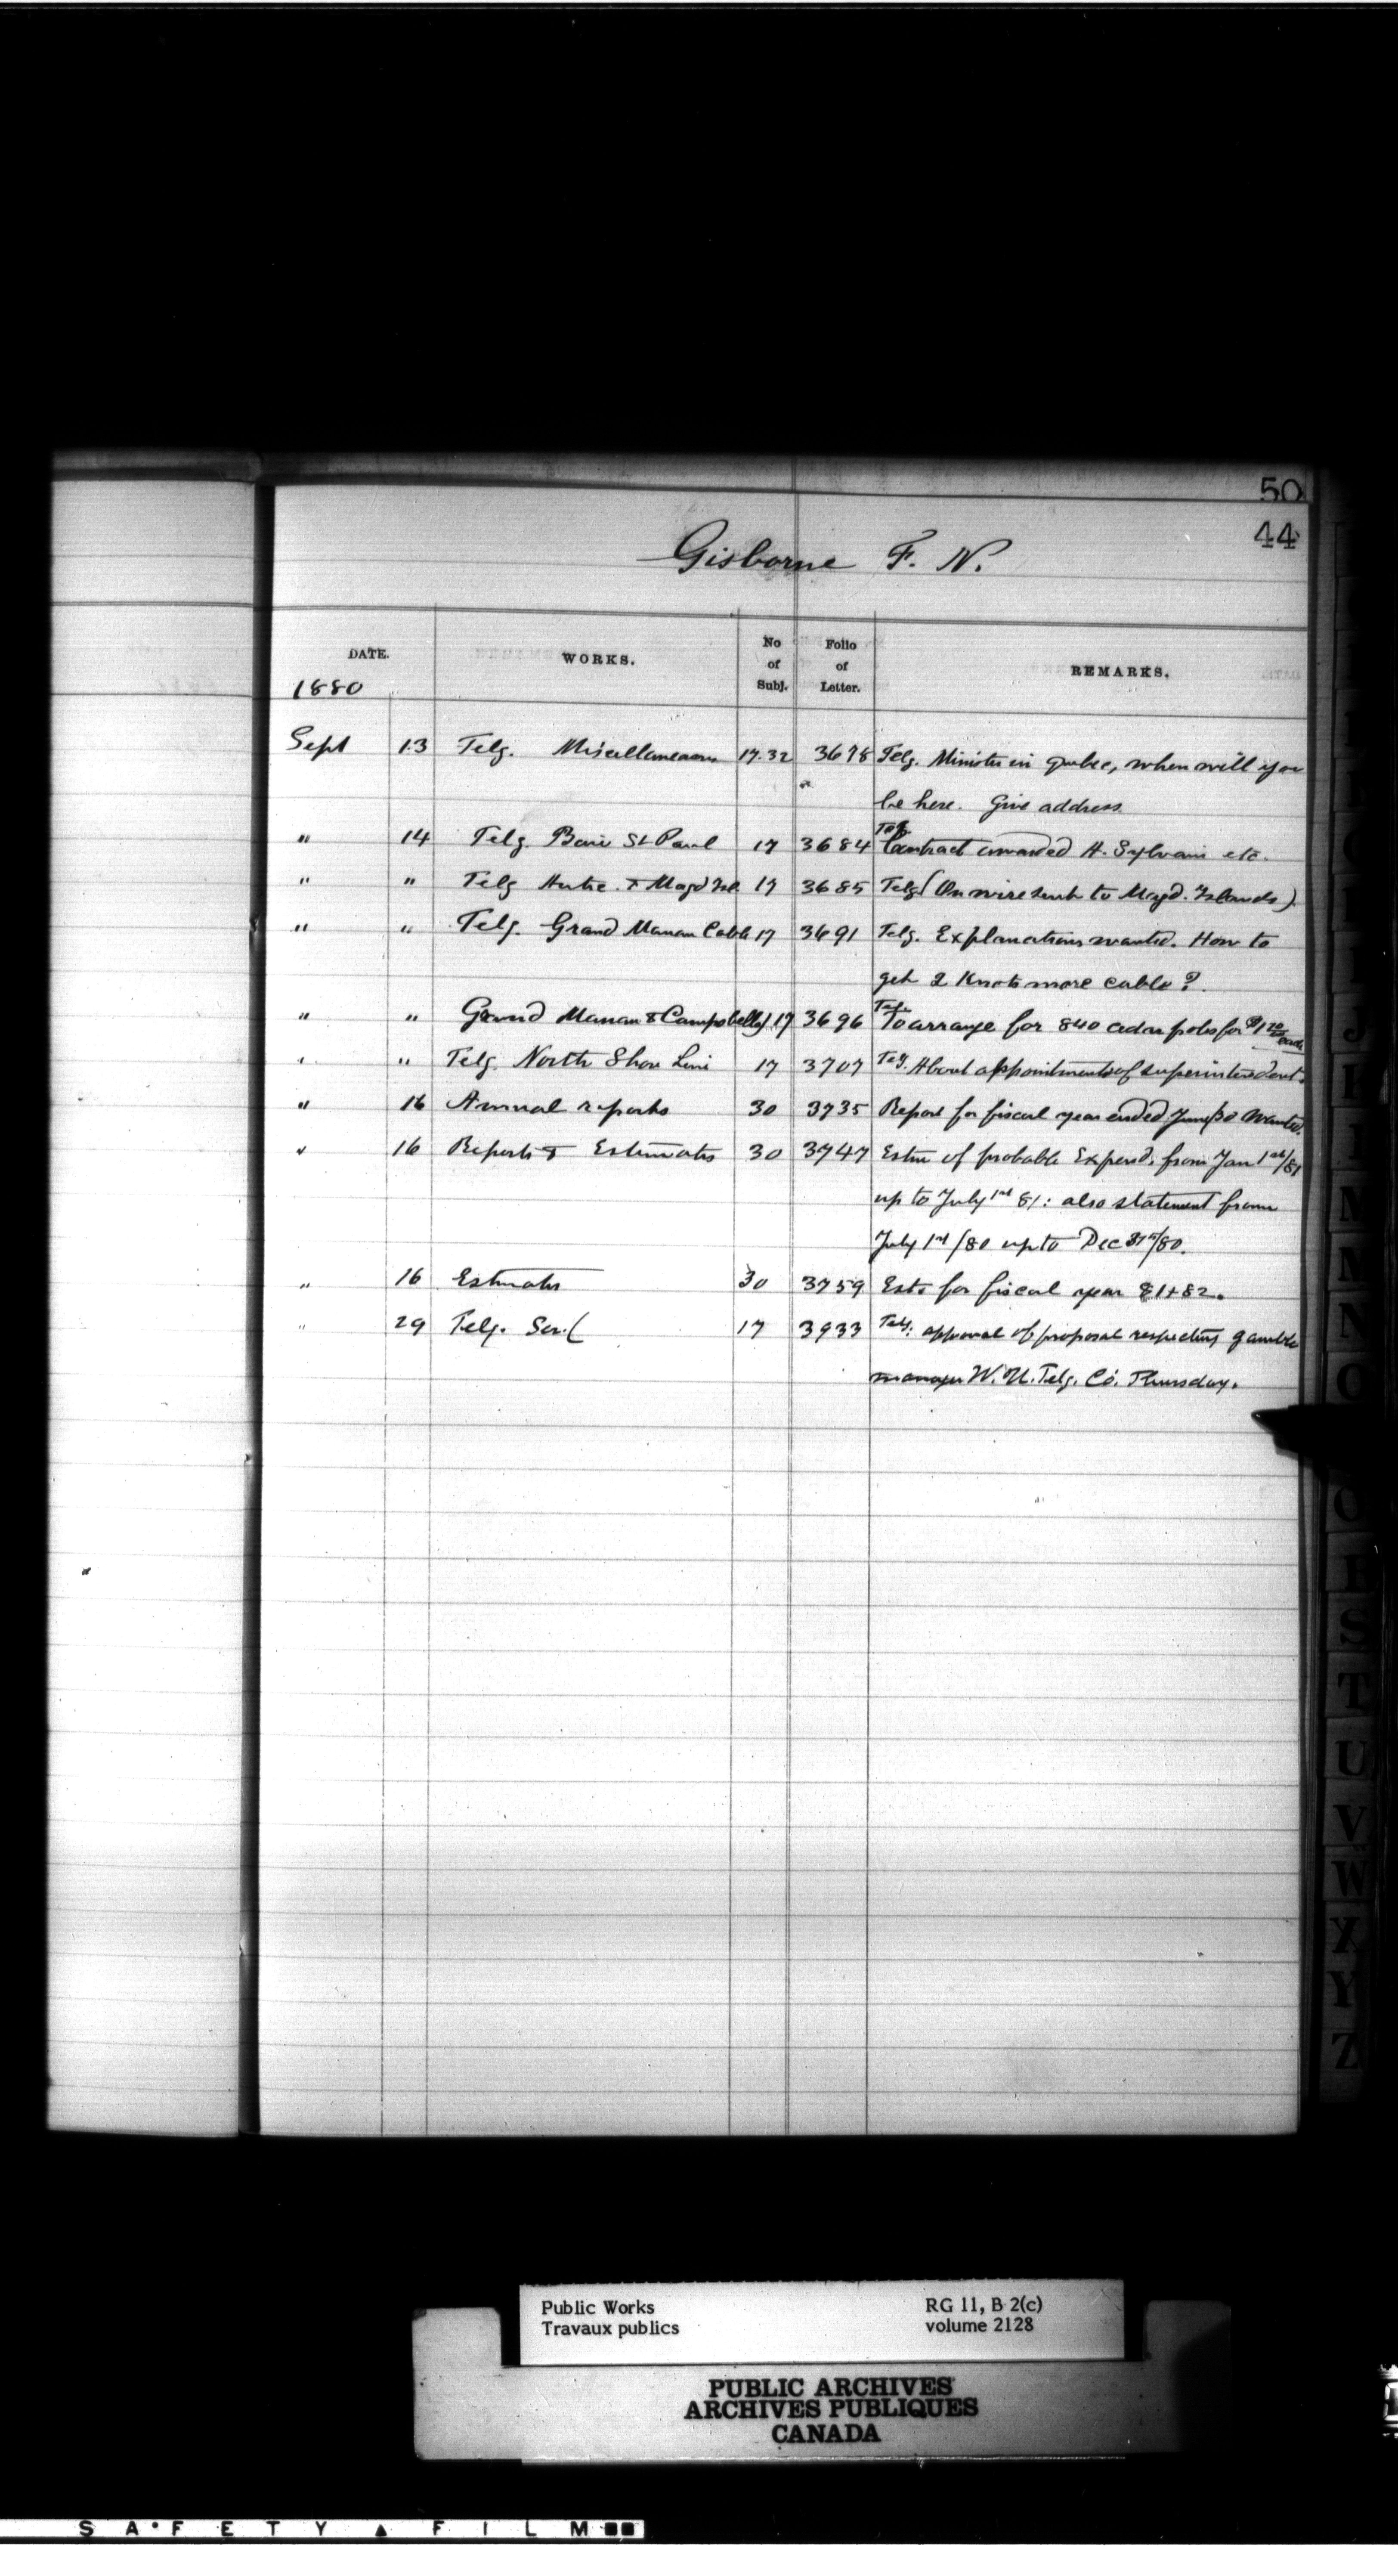 50
44
Gisborne F. N.
DATE. WORKS. No of Subj. Folio of Letter. REMARKS.
1880
Sept 13 Telg. Miscellaneous 17.32 3678 Telg. Minister in Quebec, when will you
be here. Give address.
" 14 Telg. Baie St Paul 17 3684 Telg. Contract awarded H. Sylvain etc.
" " Telg Antic. & Magd Isl. 17 3685 Telg (On wire sent to Magd. Islands)
" " Telg. Grand Manan Cable 17 3691 Telg. Explanations wanted. How to
get 2 Knots more cable?
" " Grand Manan & Campobello 17 3696 Tel. To arrange for 840 cedar poles for $1 20 each
" " Telg. North Shore Line 17 3707 Telg. About appointments of superintendent.
" 16 Annual reports 30 3735 Report for fiscal year ended June 30 wanted.
" 16 Reports & Estimates 30 3747 Estm of probable Expend. from Jan 1st/81
up to July 1st 81: also statement from
July 1st/80 up to Dec 31st/80.
" 16 Estimates 30 3759 Ests for fiscal year 81+82.
" 29 Telg. Ser. ( 17 3933 Telg. approval of proposal respecting gamble
manager W. U. Telg. Co. Thursday.
J
L
M
N
O
R
S
T
U
V
W
X
Y
Z
Public Works RG 11, B 2(c)
Travaux publics volume 2128
PUBLIC ARCHIVES
ARCHIVES PUBLIQUES
CANADA
SAFETY ▲ FILM